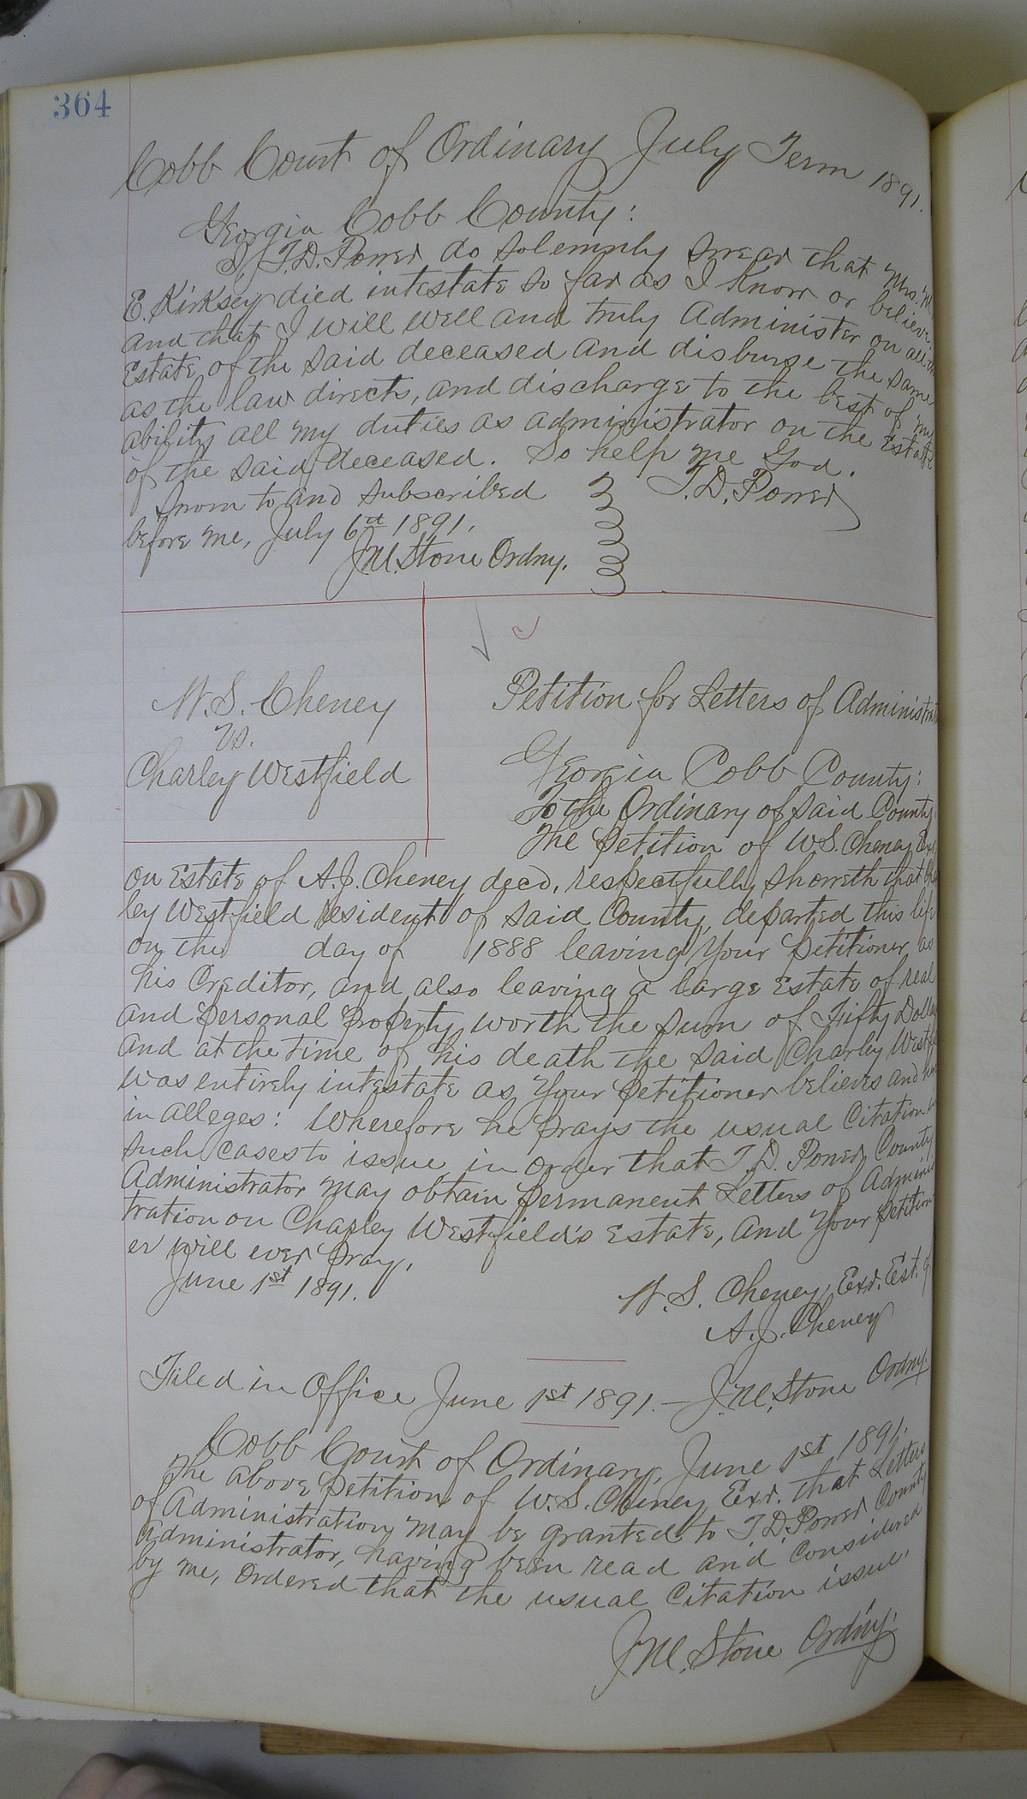 364
Cobb Court of Ordinary July Term 1891.
Georgia Cobb County:
I, T. D. Power do solemnly swear that Mrs. M
E. Kirksey died intestate so far as I know or believe.
and that I will well and truly Administer on all the
Estate of the said deceased and disburse the same
as the law directs, and discharge to the best of my
ability all my duties as administrator on the Estate
of the said deceased. So help me God.
Sworn to and subscribed T. D. Power
before me, July 6th 1891.
J. M. Stone Ordny.
W. S. Cheney
vs.
Charley Westfield
Petition for Letters of Administrat
Georgia Cobb County:
To the Ordinary of said County.
The Petition of W. S. Cheney Exr
on Estate of A. J. Cheney decd, respectfully showeth that Char
ley Westfield Resident of said County, departed this life
on the day of 1888 leaving Your Petitioner as
his Creditor, and also leaving a large Estate of real
and personal property worth the sum of Fifty Dollars
and at the time of his death the said Charley Westfi
was entirely intestate as Your Petitioner believes and here
in alleges: Wherefore he prays the usual Citation in
such cases to issue in order that T. D. Power County
Administrator may obtain permanent Letters of Adminis
tration on Charley Westfield's Estate, and Your Petition
er will ever pray.
June 1st 1891.
W. S. Cheney, Exr. Est. of
A. J. Cheney
Filed in Office June 1st 1891. — J. M. Stone Ordny.
Cobb Court of Ordinary, June 1st 1891.
The above Petition of W. S. Cheney Exr. that Letters
of Administration may be granted to T. D. Power County
Administrator, having been read and considered
by me, ordered that the usual Citation issue.
J. M. Stone Ordny.